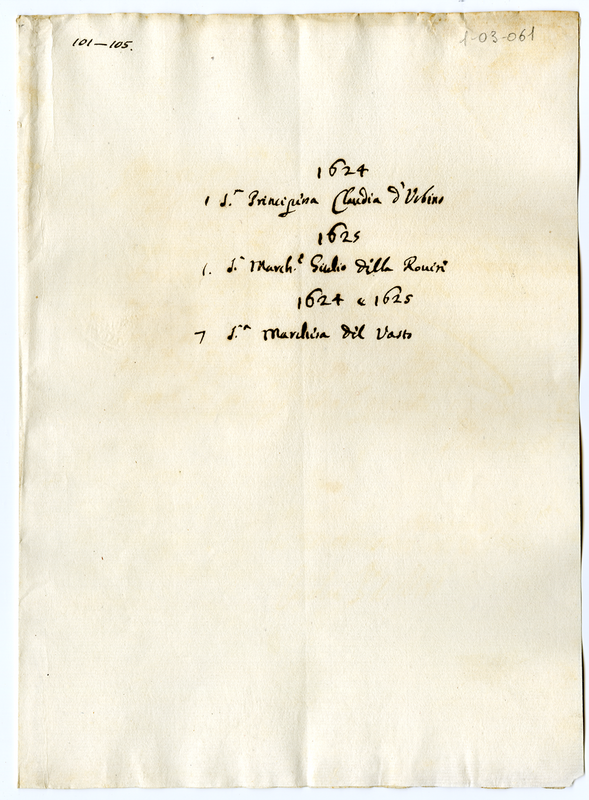 101—105.
1-03-061
1624
1 S.ra Principessa Claudia d'Urbino
1625
1. S.r March.e Giulio della Rovere
1624 e 1625
7 S.ra Marchesa del Vasto